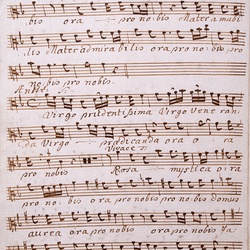 bis ora pro nobis Mater amabi
lis Mater admirabilis ora pro nobis pro
nobis pro nobis.
Andte
Virgo prudentissima Virgo veneran
da Virgo prædicanda ora o ra
Vivace
pro nobis Rosa mystica ora
pro nobis ora pro nobis pro nobis domus
aurea ora pro nobis ora pro nobis